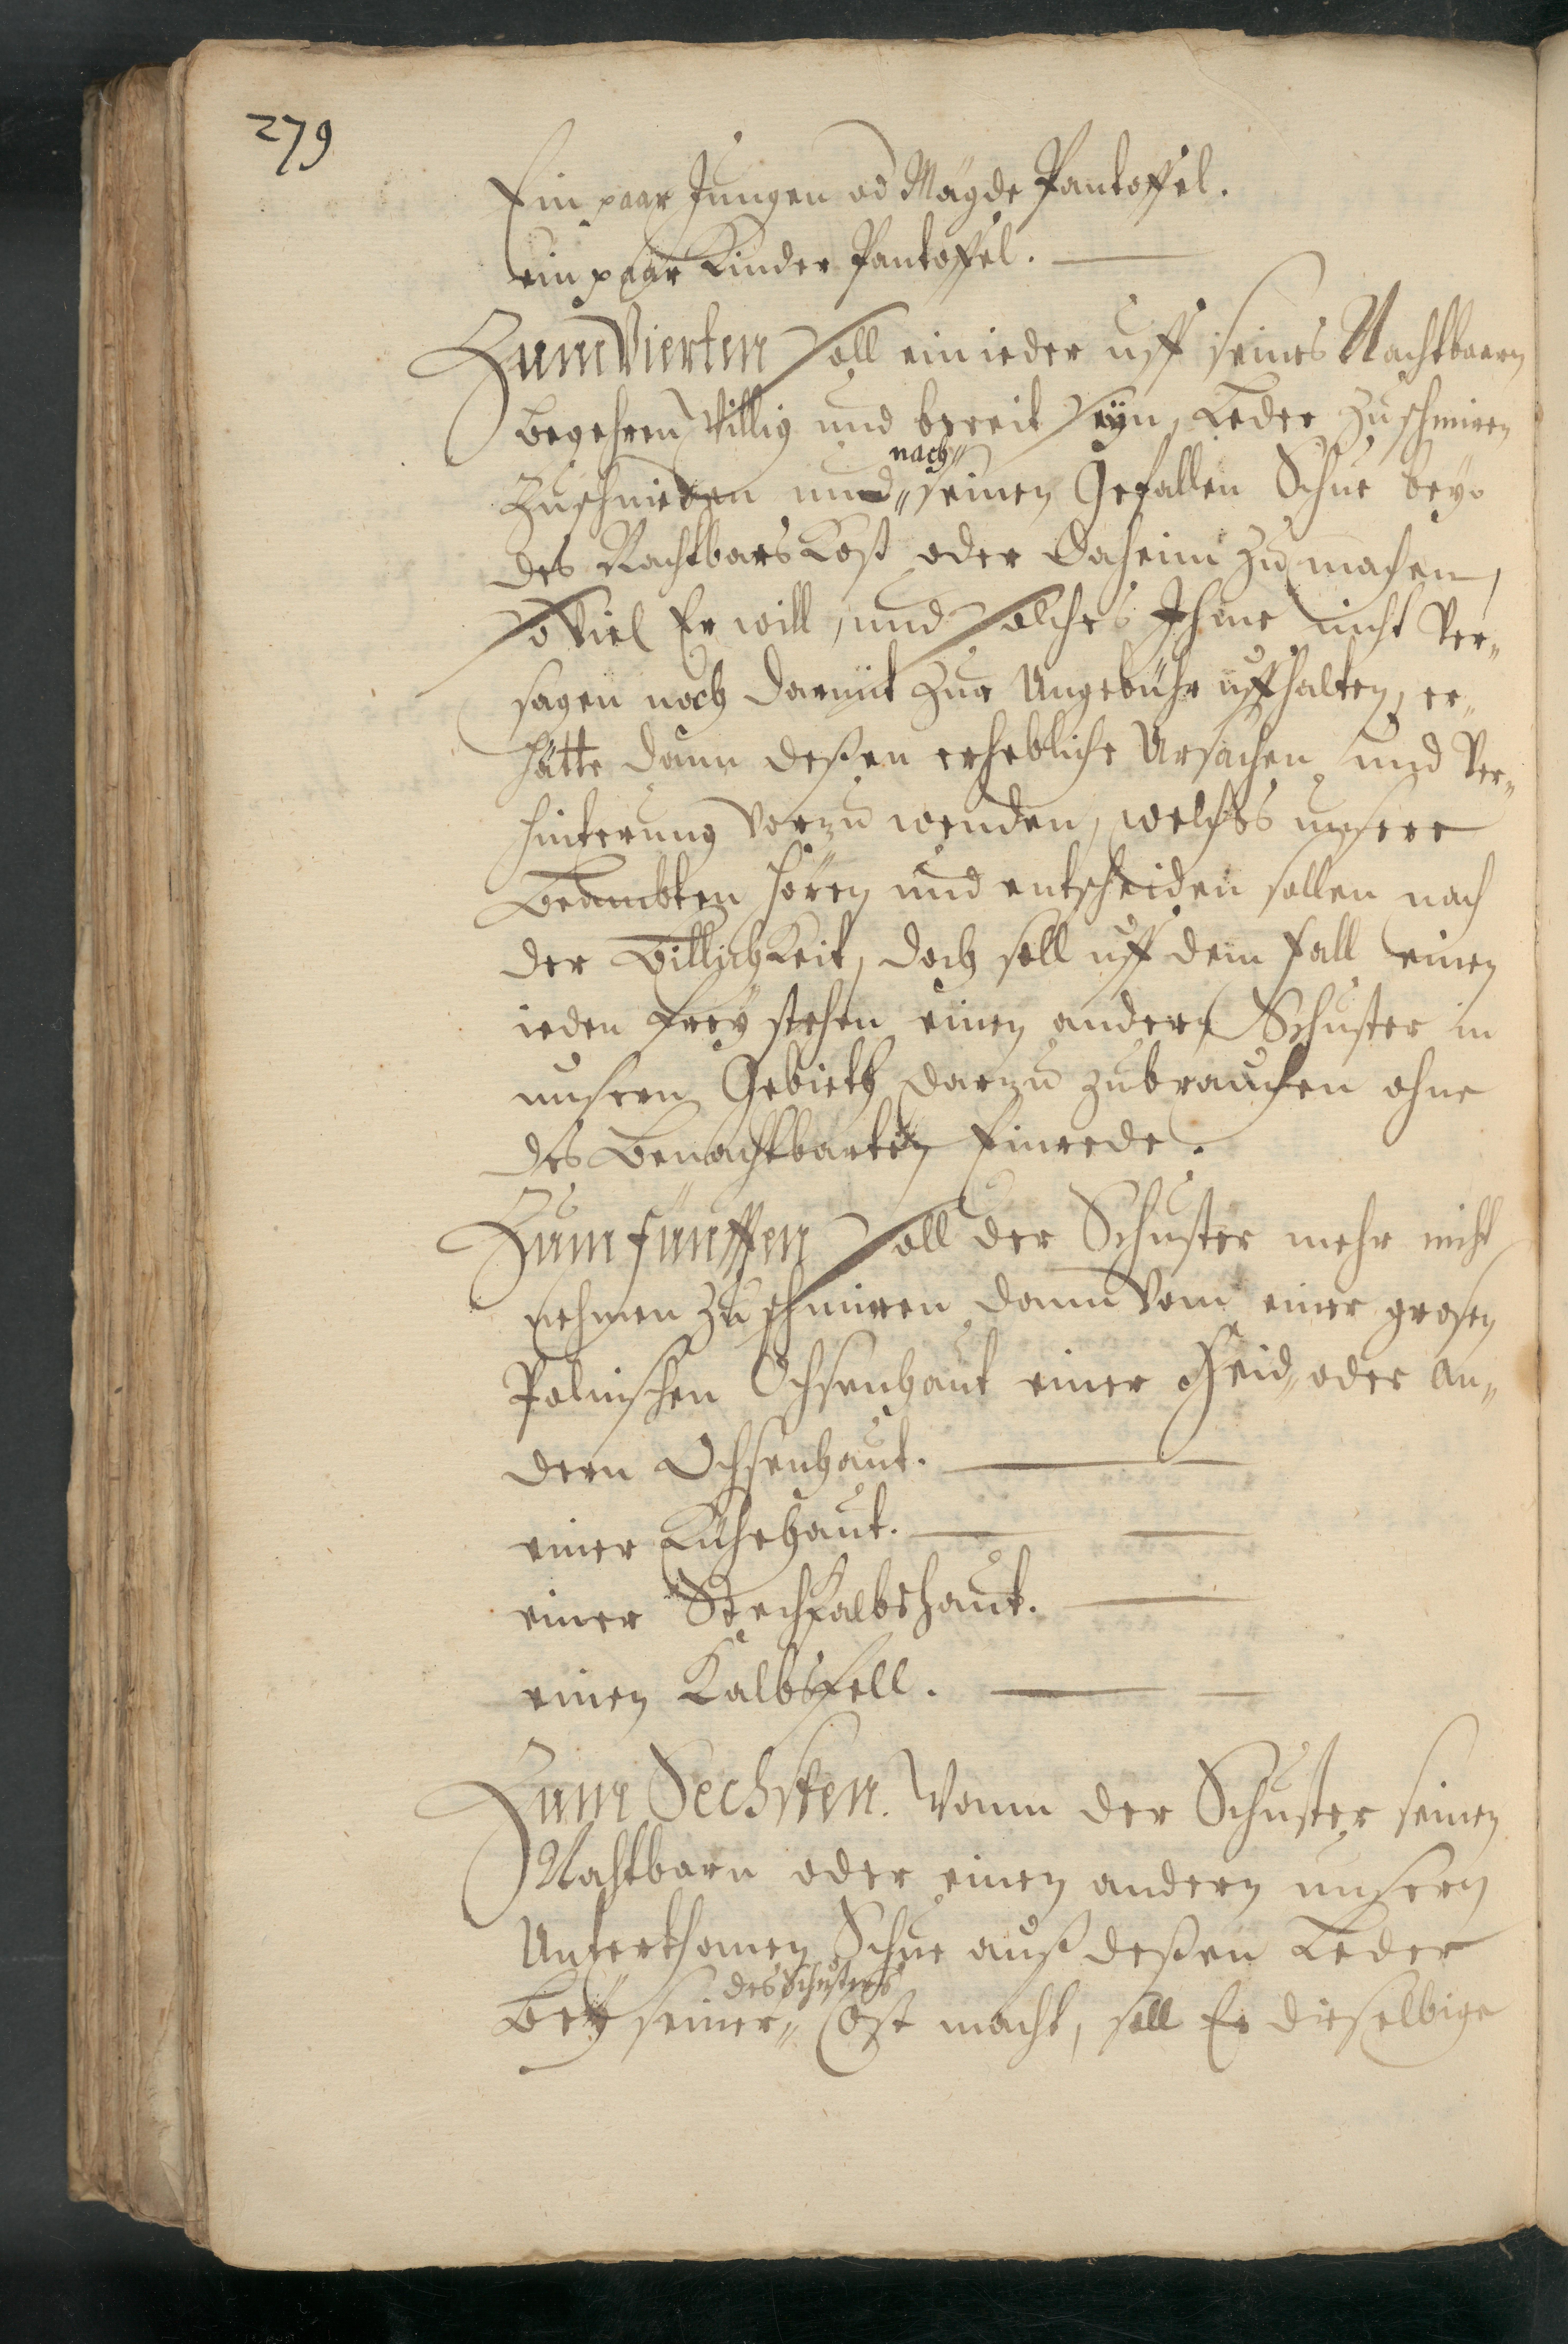 279
Ein paar Jungen od Mägde Pantoffel.
ein paar Kinder Pantoffel.
Zum Vierten Soll ein ieder uff seines Nachtbaren
begehren willig und bereit seyn, Leder zuschmiren
zuschneiden und nach seinen Gefallen Schue bey
des Nachtbars Kost oder daheim zu machen,
so viel Er will, und solches Ihme nicht ver„
sagen noch darmit zur Ungebühr uffhalten, er„
hätte dann deßen erhebliche Ursachen und Ver„
hinterung vorzu wenden, welches unsere
Beambten hören und entscheiden sollen nach
der Billichkeit, doch soll uff dem fall einen
ieden frey stehen einen andern Schuster in
unsern Gebieth darzu zubrauchen ohne
des Benachtbarten Einrede.
Zum fünfften Soll der Schuster mehr nicht
nehmen zu schmiren dann vom einer grosen
Polnischen Ochsenhaut einer Heid„ oder an„
dern Ochsenhaut.
einer Kuhehaut.
einer Stechkalbshaut.
einen Kalbsfell.
Zum Sechsten. Wann der Schuster seinen
Nachtbarn oder einen andern unsern
Unterthanen Schue auß deßen Leder
Bey seiner„ des Schusters Cost macht, soll Er dieselbige